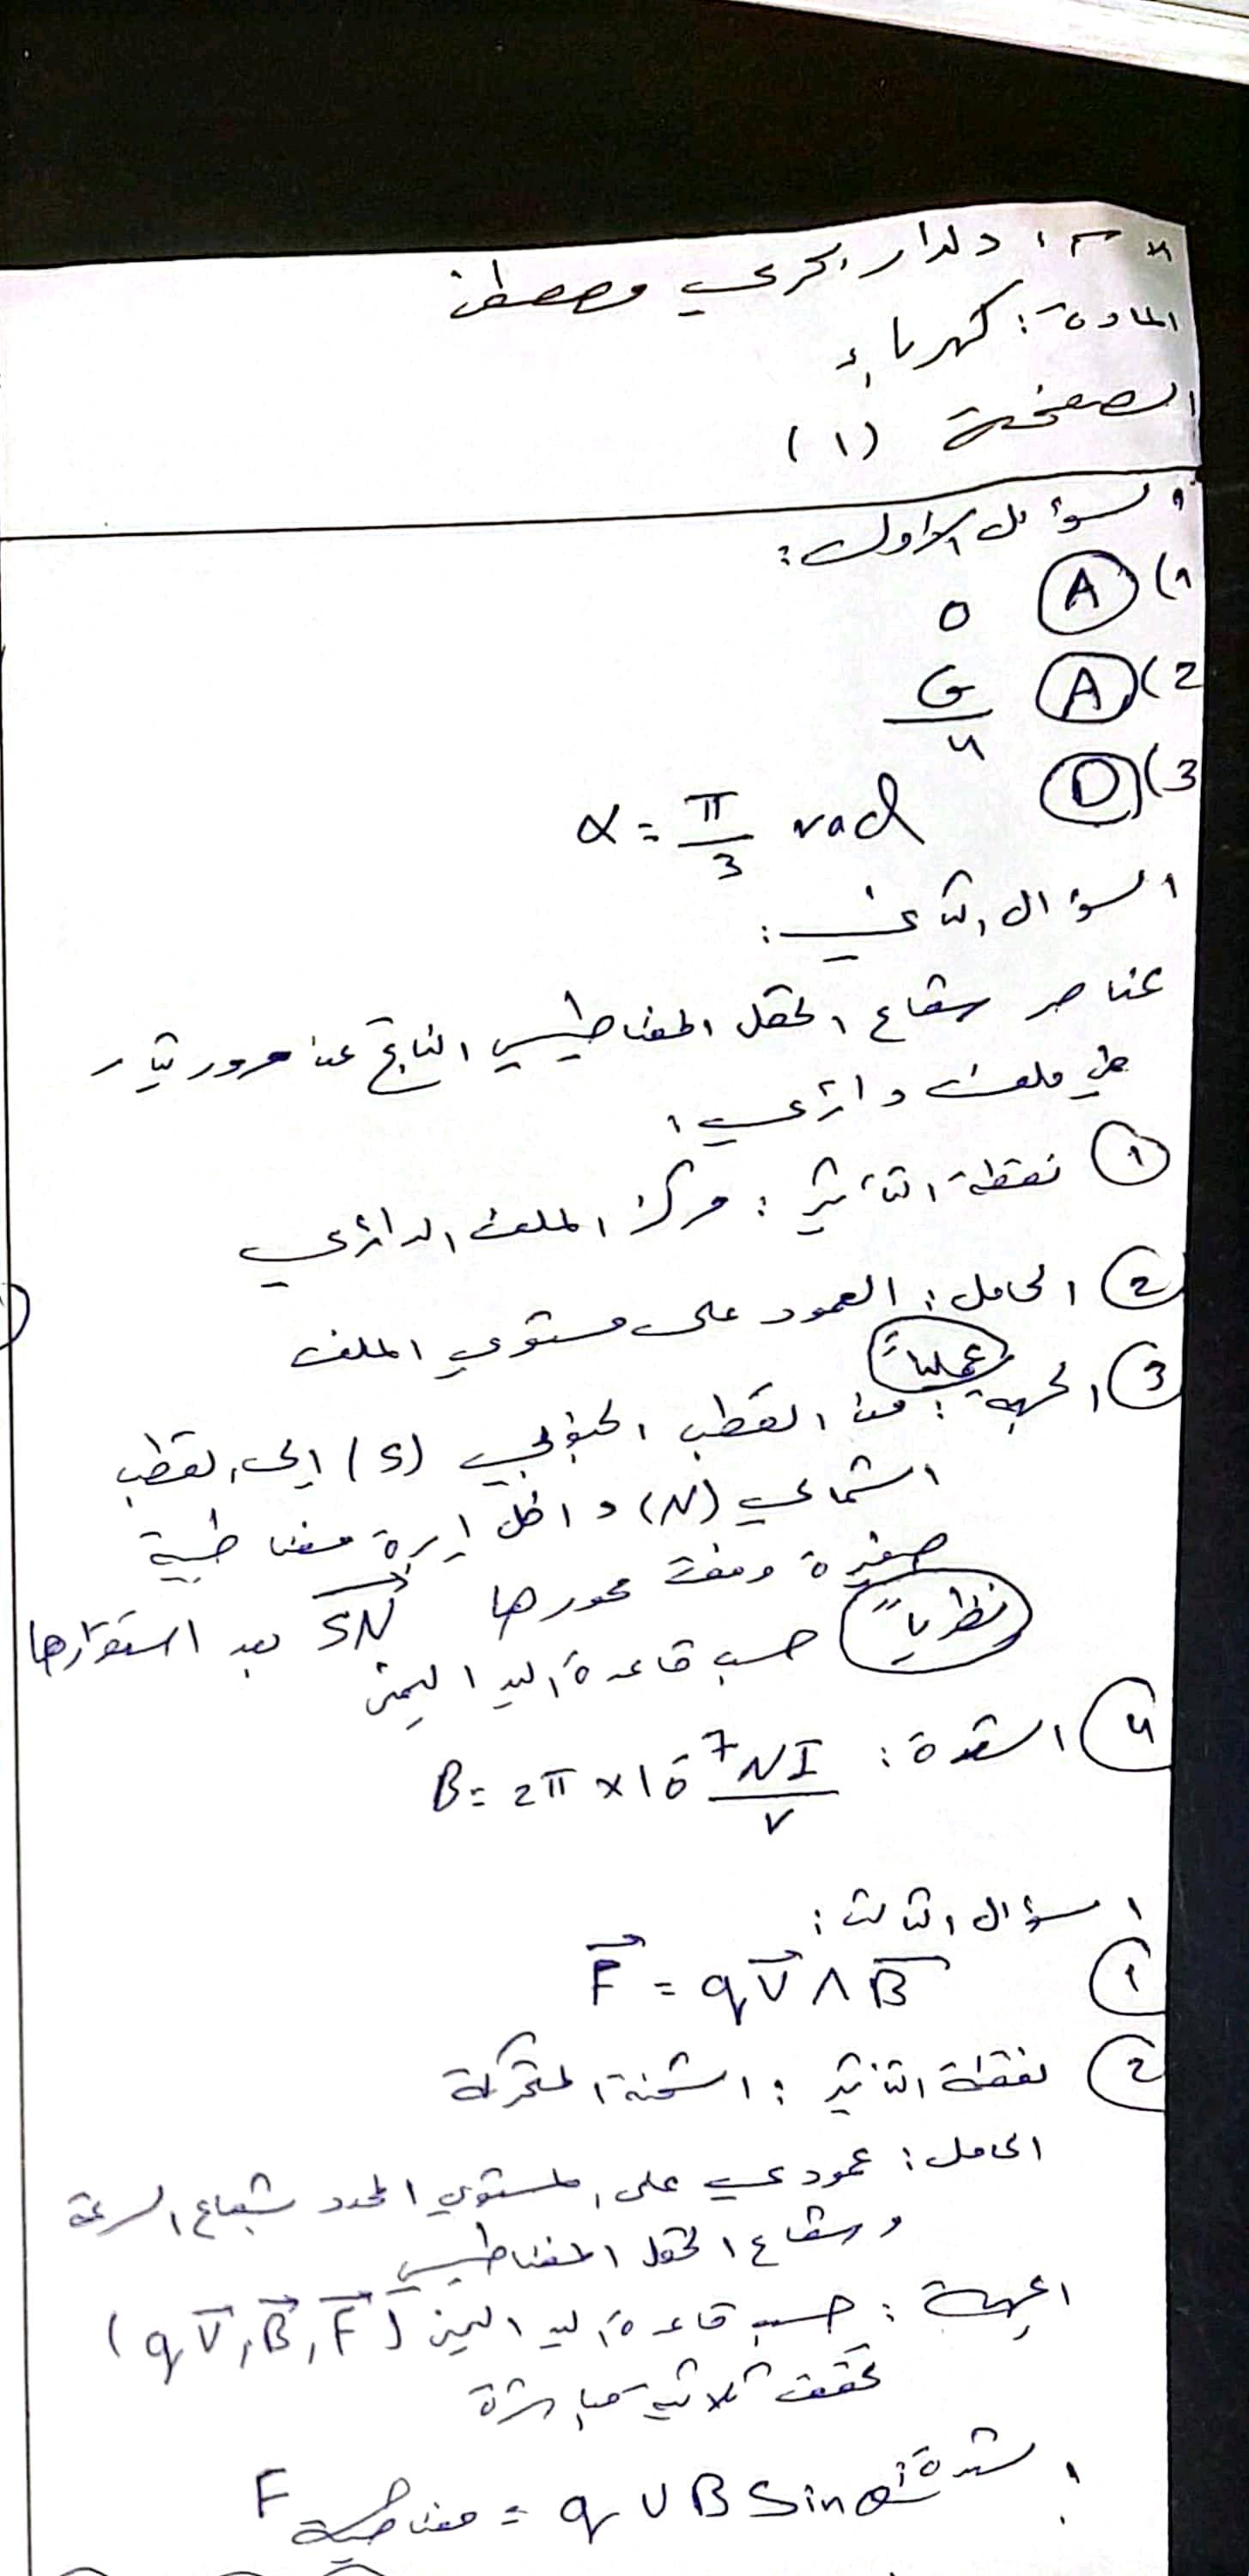 الاسم: دلدار بكري مصطفى
المادة: كهرباء
الصفحة (١)
السؤال الاول:
1) A 0
2) A G/4
3) D α = π/3 rad
السؤال الثاني:
عناصر شعاع الحقل المغناطيسي الناتج عن مرور تيار
في ملف دائري:
① نقطة التأثير: مركز الملف الدائري
② الحامل: العمود على مستوي الملف
③ الجهة: عملياً: من القطب الجنوبي (S) إلى القطب
الشمالي (N) داخل إبرة مغناطيسية
صغيرة وفق محورها SN بعد استقرارها
نظرياً حسب قاعدة اليد اليمنى
④ الشدة: B = 2π × 10⁻⁷ NI/r
السؤال الثالث:
① F = qV ∧ B
② نقطة التأثير: الشحنة المتحركة
الحامل: عمودي على المستوي المحدد بشعاع السرعة
وشعاع الحقل المغناطيسي
الجهة: حسب قاعدة اليد اليمنى (qV, B, F)
تحقق ثلاثية مباشرة
الشدة: F مغناطيسية = qVB Sinθ